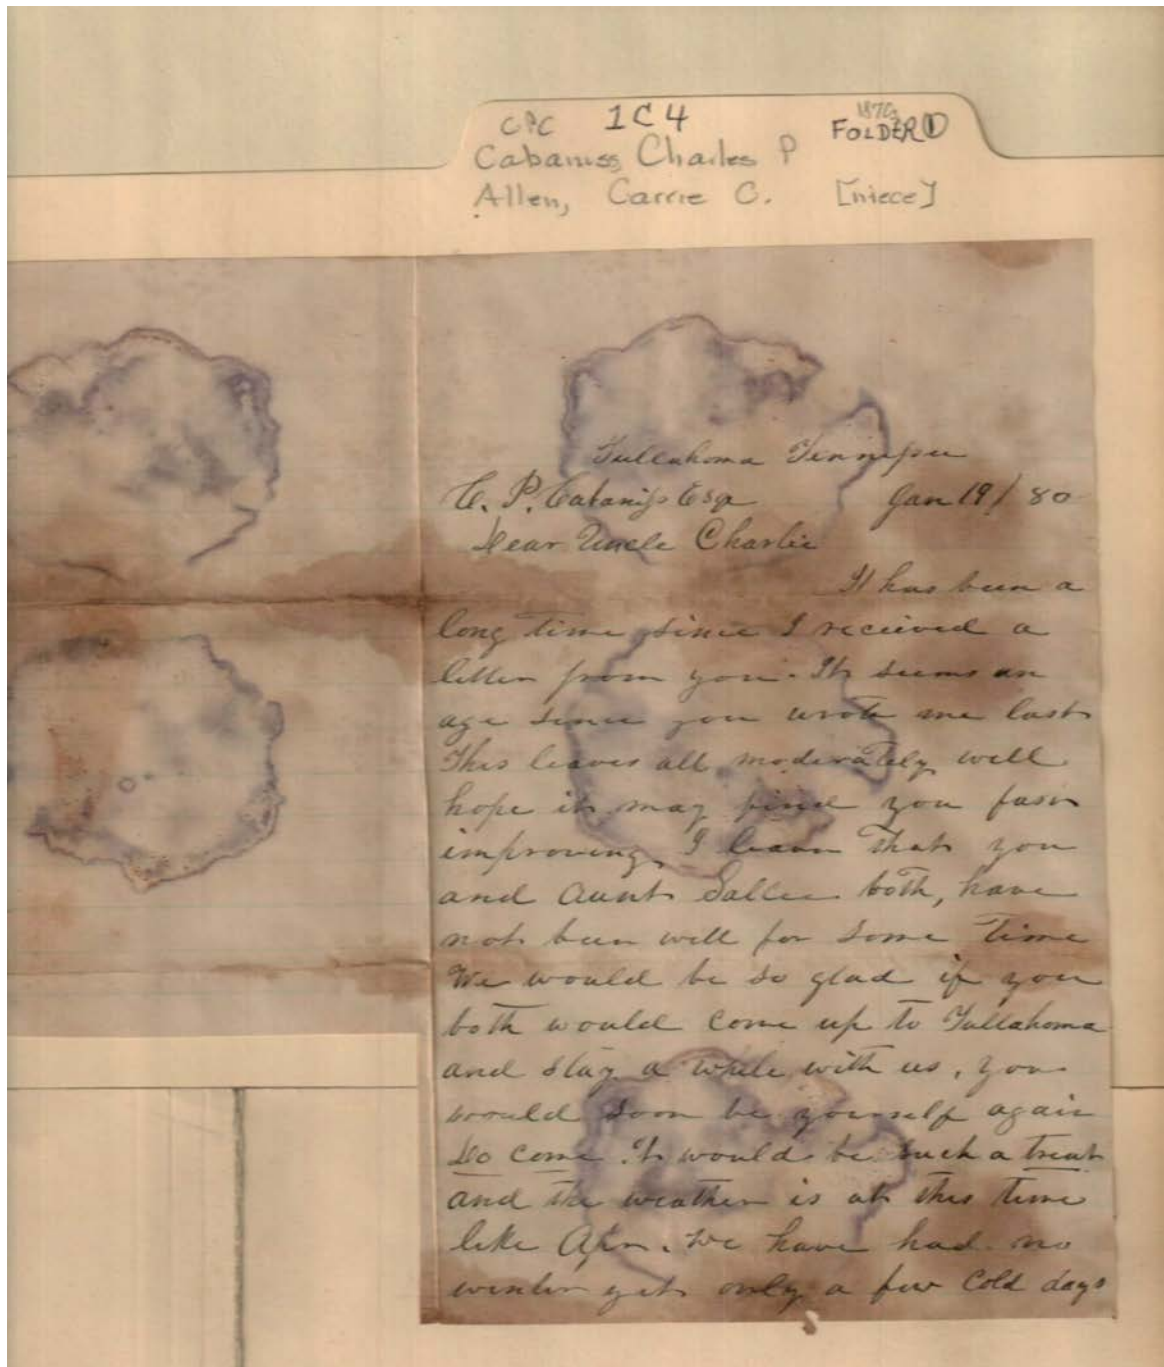 CPC 1C4 1870s
FOLDER ①
Cabaniss, Charles P
Allen, Carrie C. [niece]
Tullahoma Tennessee
C. P. Cabaniss Esq Jan 19 / 80
Dear Uncle Charlie
It has been a
long time since I received a
letter from you. It seems an
age since you wrote me last
This leaves all moderately well
hope it may find you fast
improving, I learn that you
and Aunt Sallie both, have
not been well for some time
We would be so glad if you
both would come up to Tullahoma
and stay a while with us, you
would soon be yourself again
Do come. It would be such a treat
and the weather is at this time
like Apr. We have had no
winter yet only a few cold days